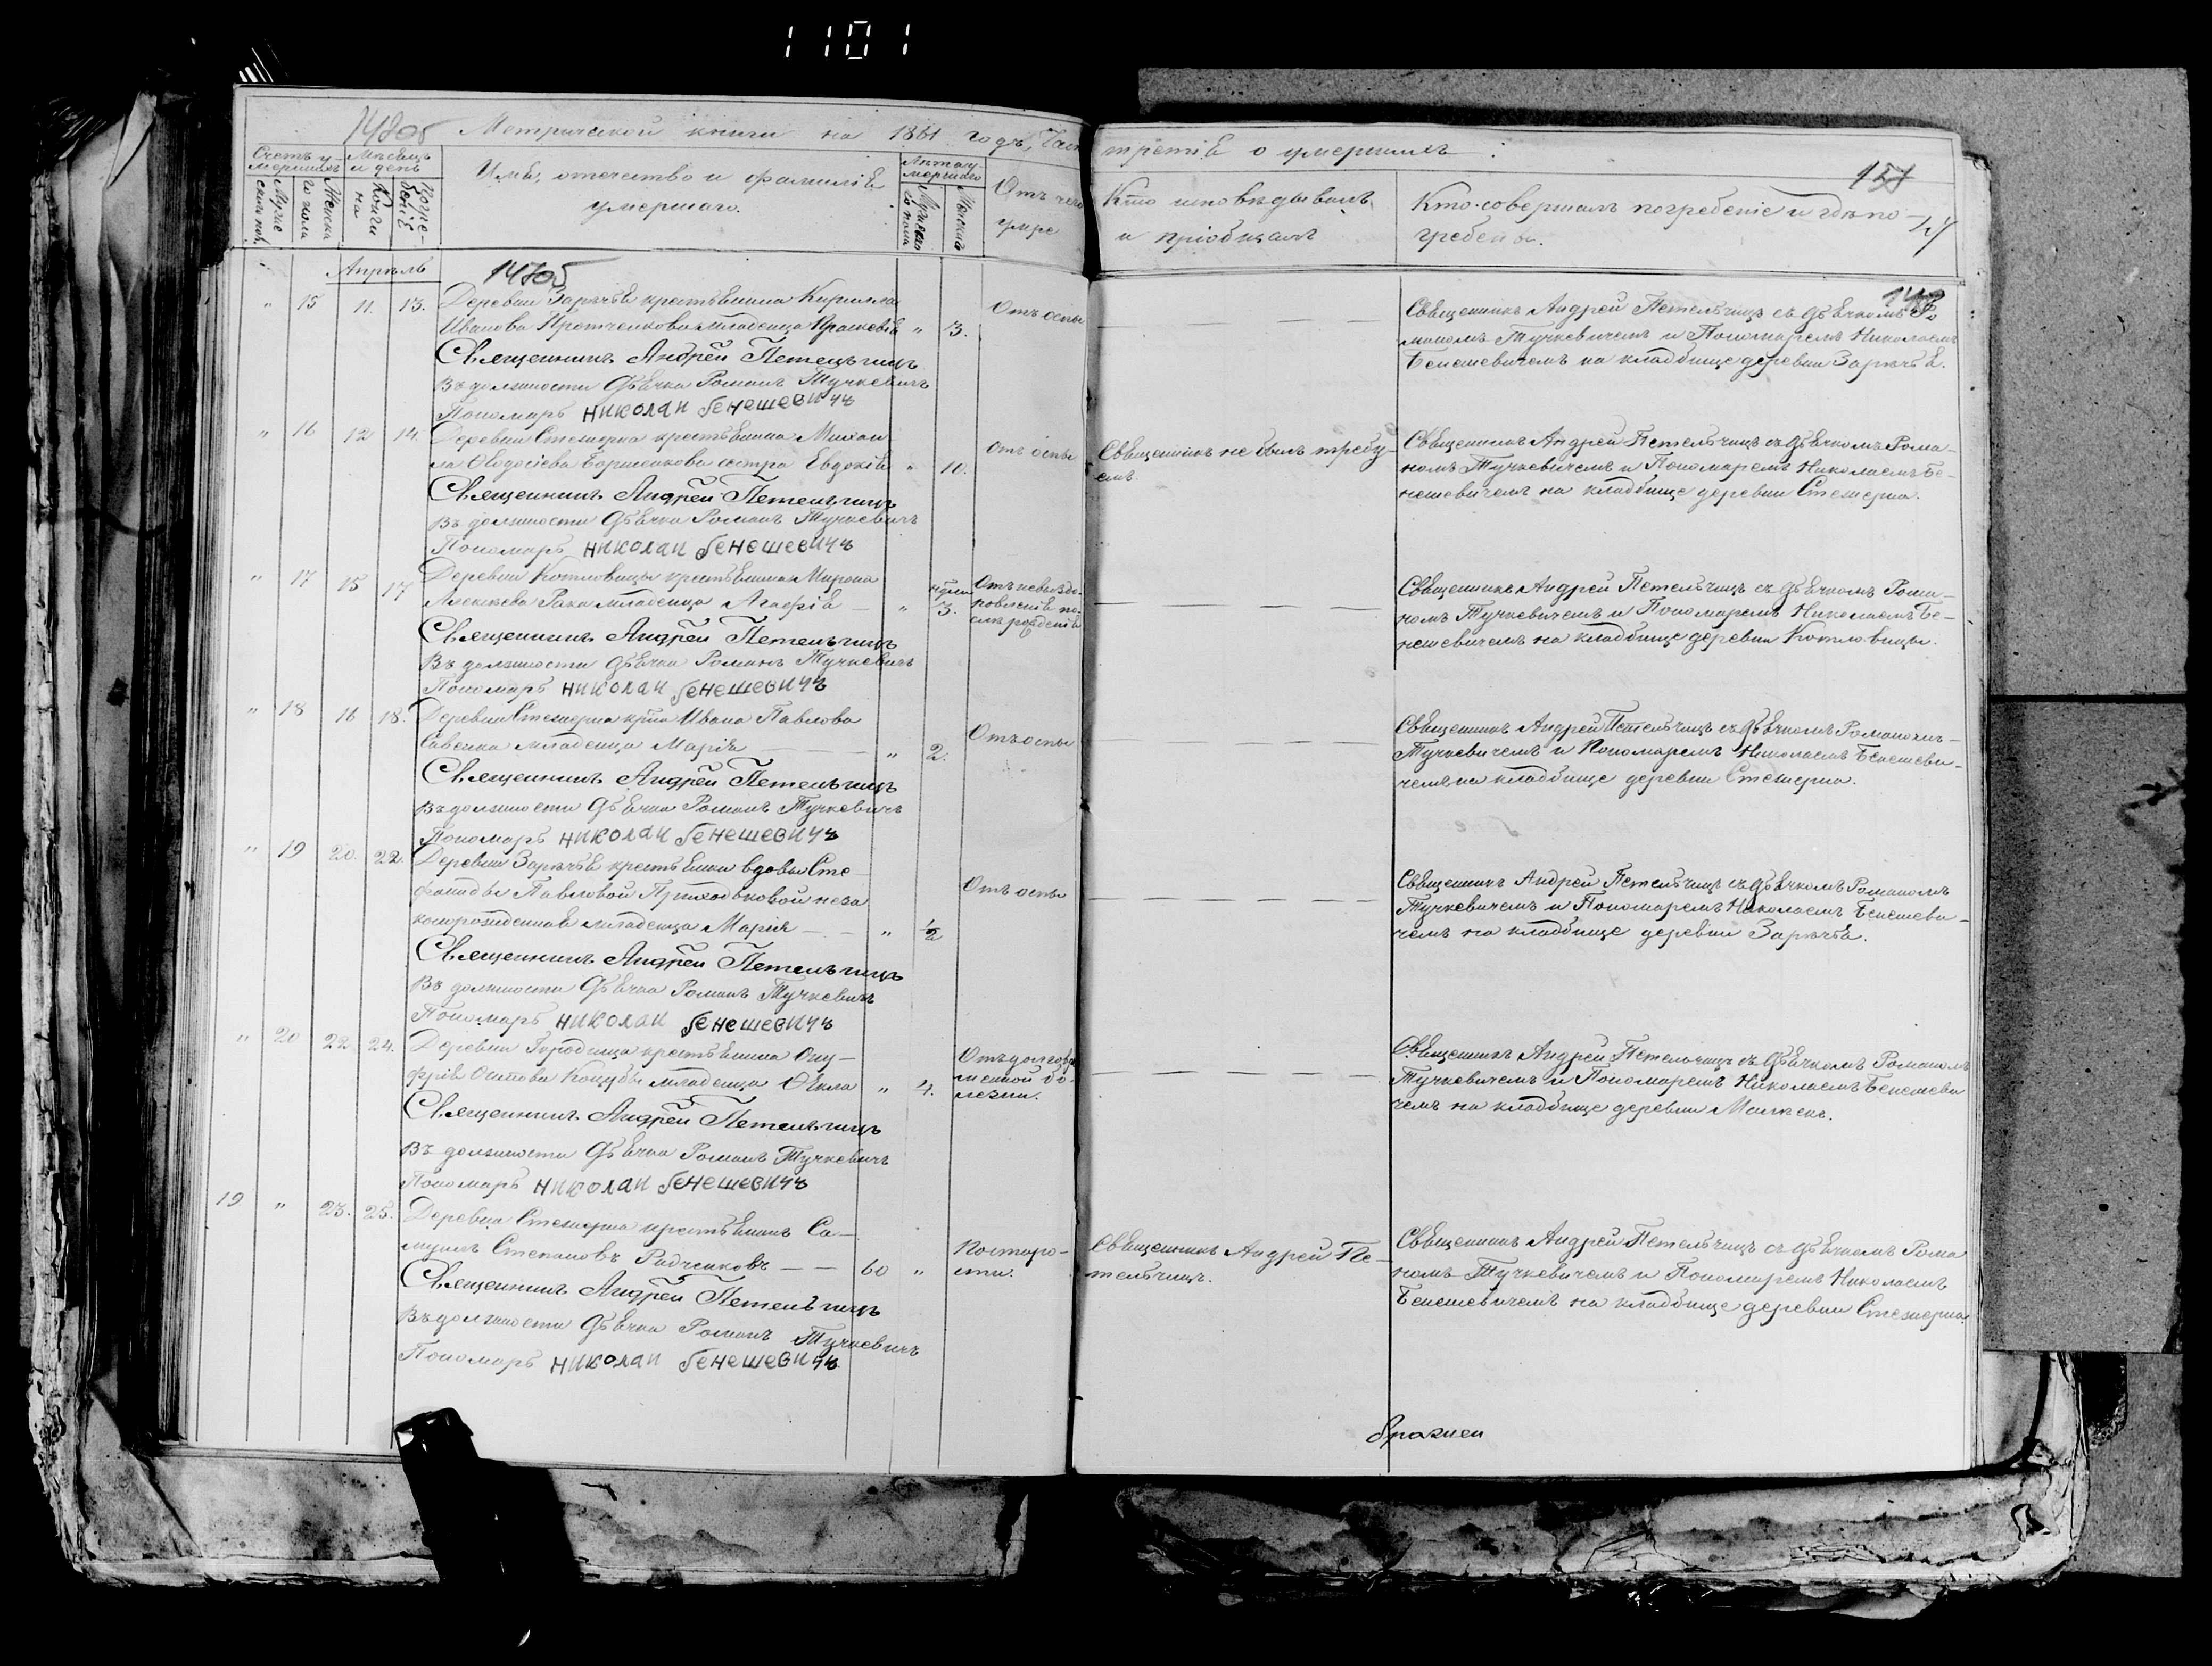 1101
14705 Метрической книги на 1861 годъ, Част
третія о умершихъ.
157
Счетъ у-
мершихъ
Мѣсяцъ
и день
Имя, отечество и фамилія
умершаго.
Лѣта у-
мершаго
Отъ чего
умре
Мужес-
каго пол.
Женска
го пола
Кончи
на
Погре-
беніе
Мужеск
аго пола
Женскаго
Кто исповѣдывалъ
и пріобщалъ
Кто совершалъ погребеніе и гдѣ по-
гребены.
Апрѣль
14705
" 15 11. 13. Деревни Зарѣчья крестьянина Кирилла
Иванова Протченкова младенца Праскевія " 3. Отъ оспы
Священникъ Андрей Петельчицъ
Въ должности Дьячка Романъ Тучкевичъ
Пономарь Николай Бенешевичъ
Священникъ Андрей Петельчицъ съ дьячкомъ Ро
маномъ Тучкевичемъ и Пономаремъ Николаемъ
Бенешевичемъ на кладбище деревни Зарѣчья.
" 16 12 14. Деревни Стежерна крестьянина Михаи
ла Ѳеодосіева Борисенкова сестра Евдокія " 10. Отъ оспы
Священникъ Андрей Петельчицъ
Въ должности Дьячка Романъ Тучкевичъ
Пономарь Николай Бенешевичъ
Священникъ не былъ требу-
емъ.
Священникъ Андрей Петельчицъ съ дьячкомъ Рома-
номъ Тучкевичемъ и Пономаремъ Николаемъ Бе-
нешевичемъ на кладбище деревни Стежерна.
" 17 15 17 Деревни Котловицы крестьянина Мирона
Алексѣева Рака младенца Агафія " 3. Отъ невыздо-
ровленія по-
слѣ рожденія
Священникъ Андрей Петельчицъ
Въ должности Дьячка Романъ Тучкевичъ
Пономарь Николай Бенешевичъ
Священникъ Андрей Петельчицъ съ дьячкомъ Рома-
номъ Тучкевичемъ и Пономаремъ Николаемъ Бе-
нешевичемъ на кладбище деревни Котловицы.
" 18 16 18. Деревни Стежерна кр-на Ивана Павлова
Савенка младенца Марія " 2. Отъ оспы
Священникъ Андрей Петельчицъ
Въ должности Дьячка Романъ Тучкевичъ
Пономарь Николай Бенешевичъ
Священникъ Андрей Петельчицъ съ дьячкомъ Романомъ
Тучкевичемъ и Пономаремъ Николаемъ Бенешеви-
чемъ на кладбище деревни Стежерна.
" 19 20. 22. Деревни Зарѣчья крестьянки вдовы Сте
фаниды Павловой Приходьковой неза
коннорожденная младенца Марія " 1/2 Отъ оспы
Священникъ Андрей Петельчицъ
Въ должности Дьячка Романъ Тучкевичъ
Пономарь Николай Бенешевичъ
Священникъ Андрей Петельчицъ съ дьячкомъ Романомъ
Тучкевичемъ и Пономаремъ Николаемъ Бенешеви-
чемъ на кладбище деревни Зарѣчья.
" 20 22 24. Деревни Городища крестьянина Ону-
фрія Осипова Коцубы младенца Ѳекла " 4. Отъ долговре
менной бо-
лезни.
Священникъ Андрей Петельчицъ
Въ должности Дьячка Романъ Тучкевичъ
Пономарь Николай Бенешевичъ
Священникъ Андрей Петельчицъ съ дьячкомъ Романомъ
Тучкевичемъ и Пономаремъ Николаемъ Бенешеви
чемъ на кладбище деревни
19 " 23. 25. Деревни Стежерна крестьянинъ Са-
муилъ Степановъ Радченковъ 60 " По старо-
сти.
Священникъ Андрей Петельчицъ
Въ должности Дьячка Романъ Тучкевичъ
Пономарь Николай Бенешевичъ
Священникъ Андрей Пе-
тельчицъ.
Священникъ Андрей Петельчицъ съ дьячкомъ Рома
номъ Тучкевичемъ и Пономаремъ Николаемъ
Бенешевичемъ на кладбище деревни Стежерна.